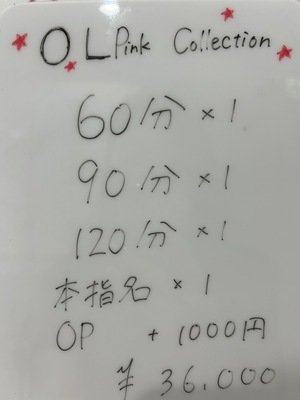 OL Pink Collection
60分 × 1
90分 × 1
120分 × 1
本指名 × 1
OP + 1000円
¥ 36,000